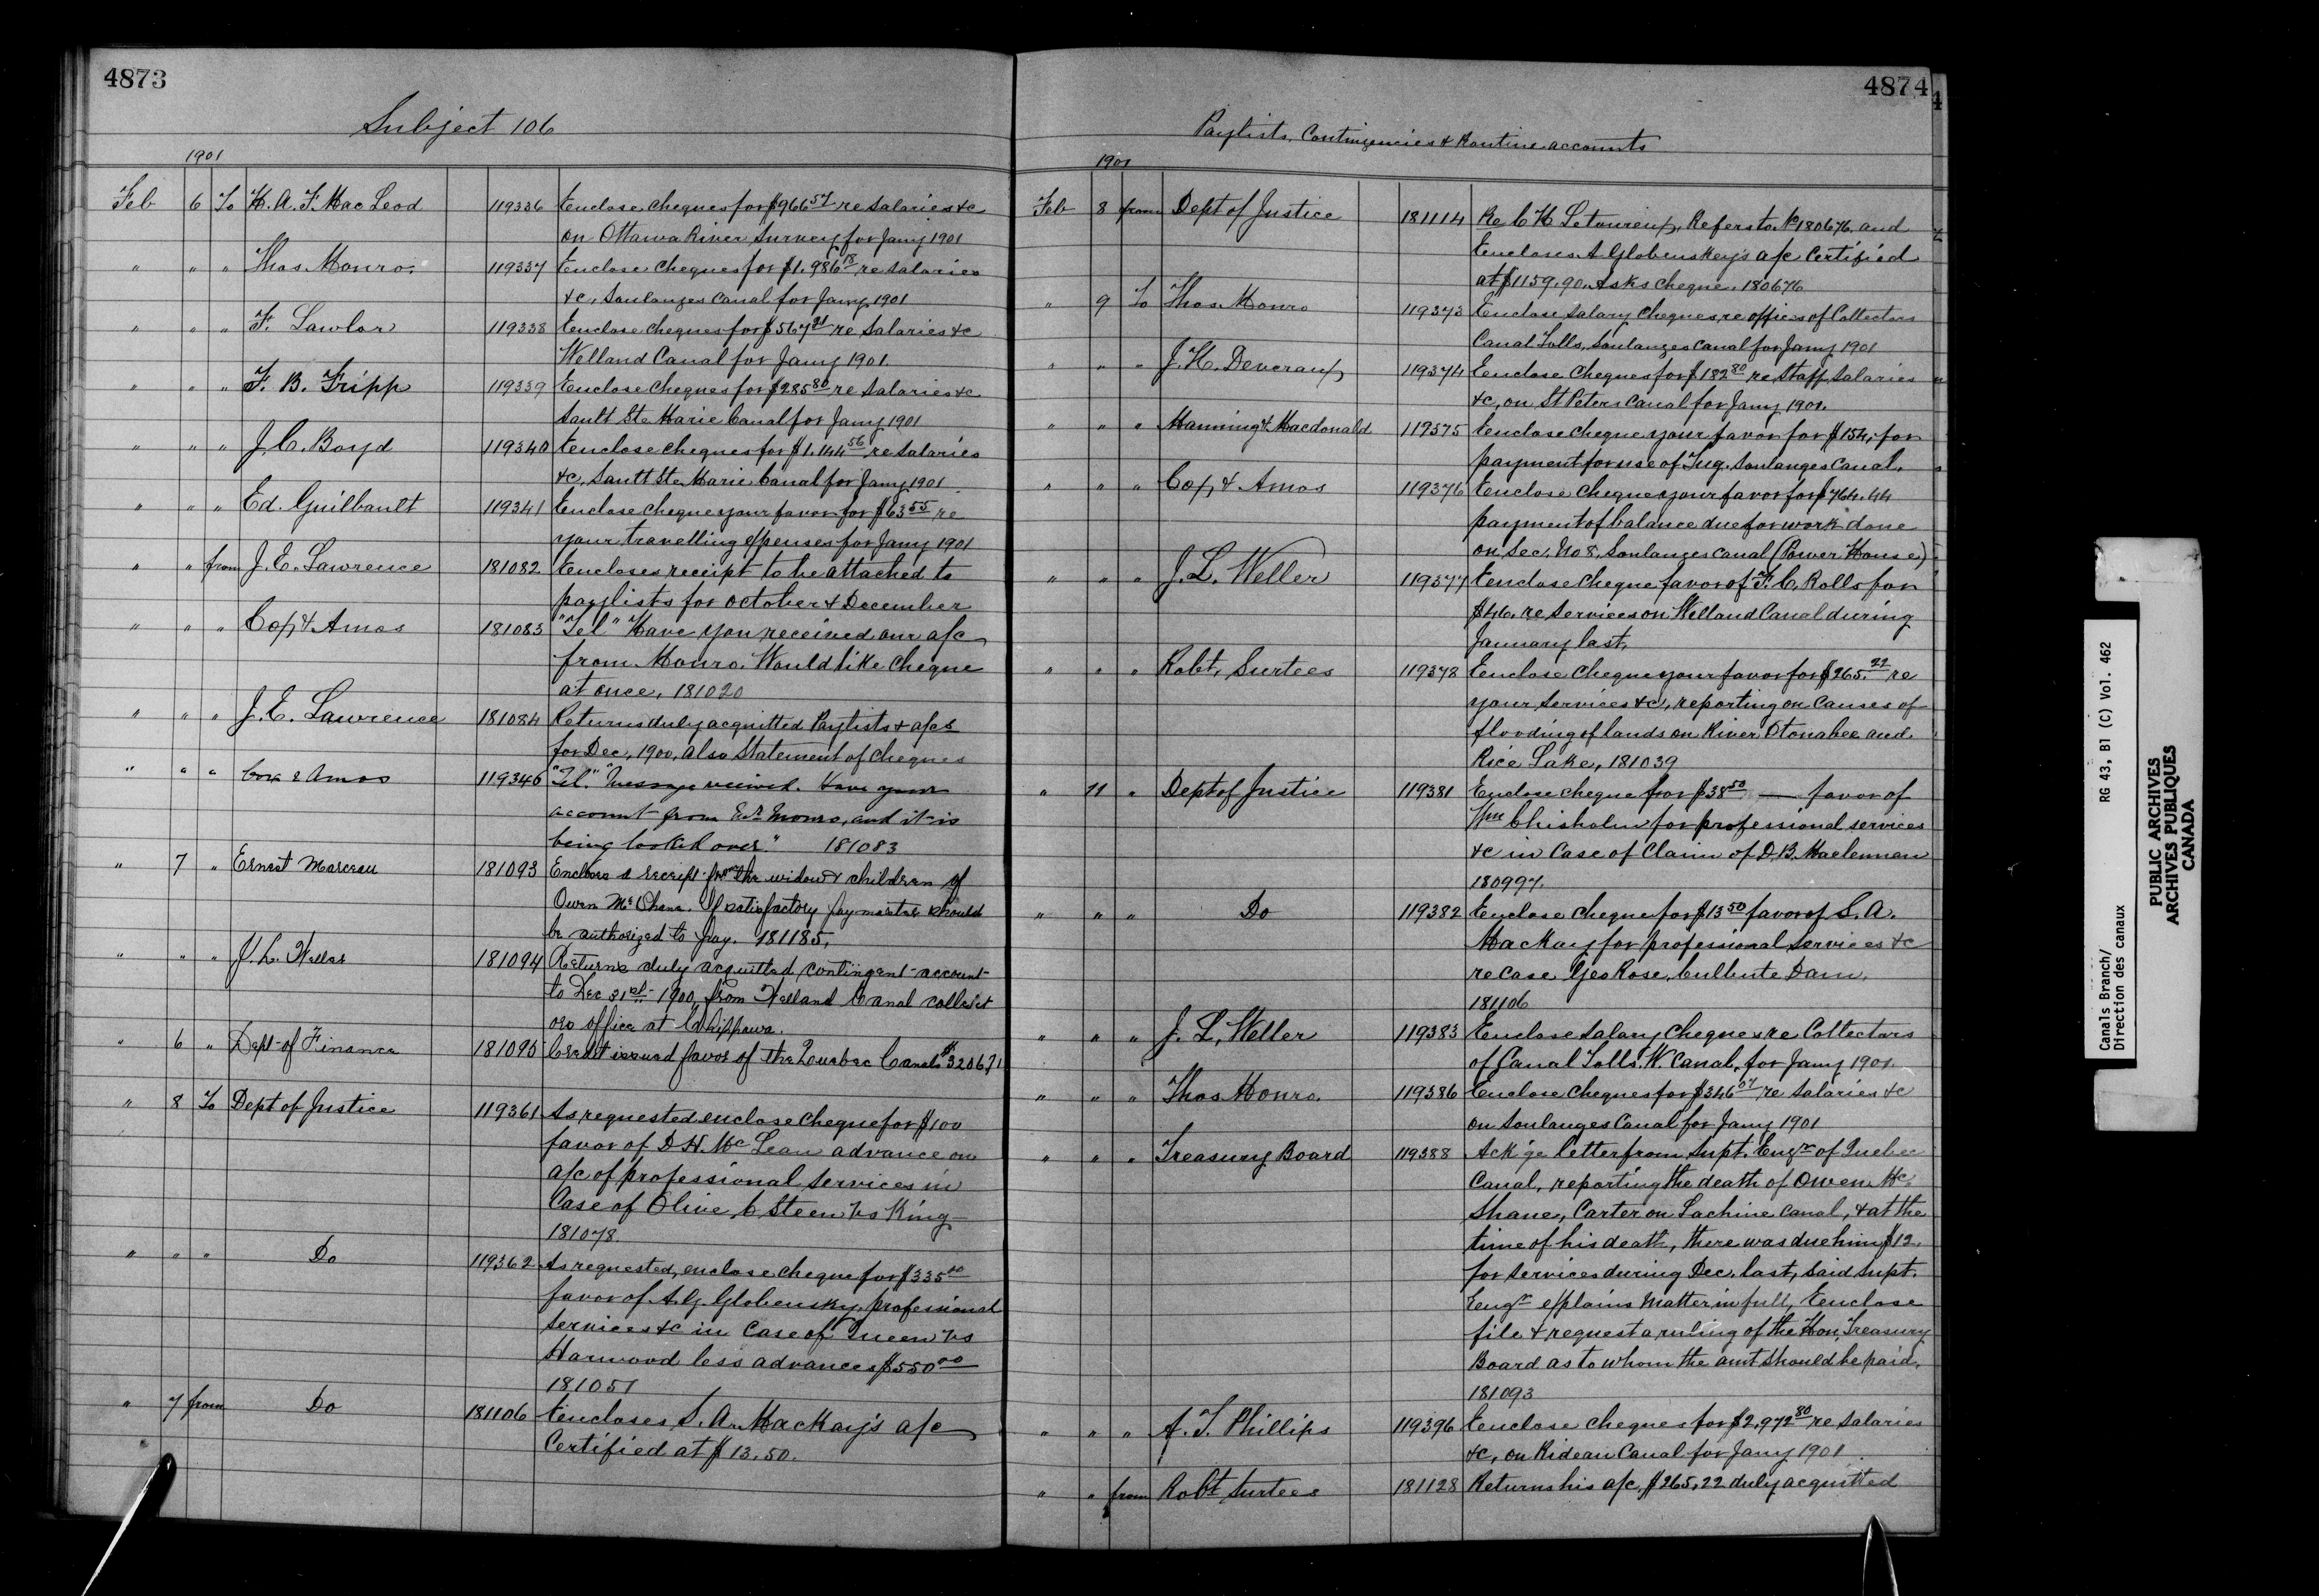 4873
Subject 106
1901
Feb 6 To H. A. F. MacLeod 119336 Enclose cheques for $966.57 re salaries &c
on Ottawa River Survey for Jany 1901
" " " Thos. Monro. 119337 Enclose cheques for $1.986 18 re salaries
&c, Soulanges Canal for Jany 1901
" " " F. Lawlor 119338 Enclose cheques for $567 21 re Salaries &c
Welland Canal for Jany 1901.
" " " F. B. Fripp 119339 Enclose cheques for $285 80 re Salaries &c
Sault Ste Marie Canal for Jany 1901
" " " J. C. Boyd 119340 Enclose cheques for $1.144 56 re salaries
&c, Sault Ste Marie Canal for Jany 1901
" " " Ed. Guilbault 119341 Enclose cheque your favor for $63 55 re
your travelling expenses for Jany 1901
" " from J. E. Lawrence 181082 Encloses receipt to be attached to
paylists for October & December
" " " Cox & Amos 181083 "Tel" Have you received our a/c
from Monro. Would like cheque
at once, 181020
" " " J. E. Lawrence 181084 Returns duly acquitted Paylists & a/cs
for Dec, 1900, also Statement of cheques
" " " Cox & Amos 119346 "Tel." "Message received. Have your
account from Mr Monro, and it is
being looked over." 181083
" 7 " Ernest Marceau 181093 Encloses a receipt from the widow & children of
Owen McShane. If satisfactory paymaster should
be authorized to pay. 181185,
" " " J. L. Weller 181094 Returns duly acquitted contingent account
to Dec 31st 1900, from Welland Canal collect
ors office at Chippawa.
" 6 " Dept of Finance 181095 Credit issued favor of the Quebec Canals $320671
" 8 To Dept of Justice 119361 As requested enclose cheque for $100
favor of D. H. McLean advance on
a/c of professional services in
Case of Olive C Steen vs King
181078.
" " " Do 119362 As requested, enclose cheque for $335 00
favor of A. G. Globensky, professional
services &c in Case of Queen vs
Harwood less advances $550 00
181051
" 7 from Do 181106 Encloses S. A. MacKay's a/c
Certified at $13.50.
4874
Paylists, Contingencies & Routine accounts
1901
Feb 8 from Dept of Justice 181114 Re C H Letourneux, Refers to No 180676 and
Encloses A Globenskey's a/c Certified
at $1159.90. Asks cheque. 180676
" 9 To Thos. Monro 119373 Enclose salary cheques, re offices of Collectors
Canal Tolls, Soulanges Canal for Jany 1901
" " " J. H. Deveraux 119374 Enclose cheques for $182 80 re Staff, Salaries
&c, on St Peters Canal for Jany 1901.
" " " Manning & Macdonald 119375 Enclose cheque your favor for $154, for
payment for use of Tug. Soulanges Canal.
" " " Cox & Amos 119376 Enclose cheque your favor for $764.44
payment of balance due for work done
on Sec. No 8, Soulanges Canal (Power House)
" " " J. L. Weller 119377 Enclose cheque favor of F. C. Rolls for
$46. re services on Welland Canal during
January last.
" " " Robt, Surtees 119378 Enclose cheque your favor for $265.22 re
your services &c, reporting on causes of
flooding of lands on River Otonabee and
Rice Lake, 181039
" 11 " Dept of Justice 119381 Enclose cheque for $38 50 — favor of
Wm Chisholm for professional services
&c in Case of Claim of D. B. Maclennan
180997.
" " " Do 119382 Enclose cheque for $13 50 favor of S. A.
MacKay for professional services &c
re case Geo Rose, Culbute Dam.
181106
" " " J. L. Weller 119383 Enclose salary cheques re Collectors
of Canal Tolls. W. Canal, for Jany 1901.
" " " Thos Monro. 119386 Enclose cheques for $346 07 re salaries &c
on Soulanges Canal for Jany 1901
" " " Treasury Board 119388 Ack'ge letter from Supt. Engr of Quebec
Canal, reporting the death of Owen Mc
Shane, Carter on Lachine Canal, & at the
time of his death, there was due him $12.
for services during Dec. last, said Supt.
Engr explains matter in full, Enclose
file & request a ruling of the Hon. Treasury
Board as to whom the amt should be paid.
181093
" " " A. T. Phillips 119396 Enclose cheques for $2,972 80 re salaries
&c, on Rideau Canal for Jany 1901
" " from Robt Surtees 181128 Returns his a/c, $265.22 duly acquitted
Canals Branch/ RG 43, B1 (C) Vol. 462
Direction des canaux
PUBLIC ARCHIVES
ARCHIVES PUBLIQUES
CANADA